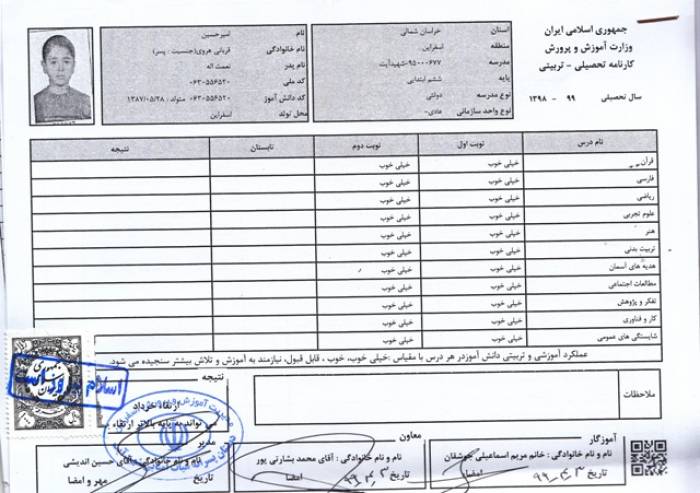 جمهوری اسلامی ایران
وزارت آموزش و پرورش
کارنامه تحصیلی - تربیتی
سال تحصیلی ۹۹ - ۱۳۹۸
استان خراسان شمالی
منطقه اسفراین
مدرسه
پایه ششم ابتدایی
نوع مدرسه دولتی
نوع واحد سازمانی عادی-
نام امیرحسین
نام خانوادگی قربانی هروی(جنسیت : پسر)
نام پدر نعمت اله
کد ملی ۰۶۳۰۵۵۶۵۲۰
کد دانش آموز ۰۶۳۰۵۵۶۵۲۰ متولد : ۱۳۸۷/۰۵/۲۸
محل تولد اسفراین
نام درس نوبت اول نوبت دوم تابستان نتیجه
قرآن خیلی خوب خیلی خوب
فارسی خیلی خوب خیلی خوب
ریاضی خیلی خوب خیلی خوب
علوم تجربی خیلی خوب خیلی خوب
هنر خیلی خوب خیلی خوب
تربیت بدنی خیلی خوب خیلی خوب
هدیه های آسمان خیلی خوب خیلی خوب
مطالعات اجتماعی خیلی خوب خیلی خوب
تفکر و پژوهش خیلی خوب خیلی خوب
کار و فناوری خیلی خوب خیلی خوب
شایستگی های عمومی خیلی خوب خیلی خوب
عملکرد آموزشی و تربیتی دانش آموزدر هر درس با مقیاس :خیلی خوب، خوب ، قابل قبول، نیازمند به آموزش و تلاش بیشتر سنجیده می شود.
ملاحظات
نتیجه
ارتقاء خرداد
می تواند به پایه بالاتر ارتقاء
آموزگار
نام و نام خانوادگی : خانم مریم اسماعیلی جوشقان
تاریخ ۹۹,۳,۳ امضا
معاون
نام و نام خانوادگی : آقای محمد بشارتی پور
تاریخ ۹۹,۳,۳ امضا
مدیر
نام و نام خانوادگی: آقای حسین اندیشی
تاریخ مهر و امضا